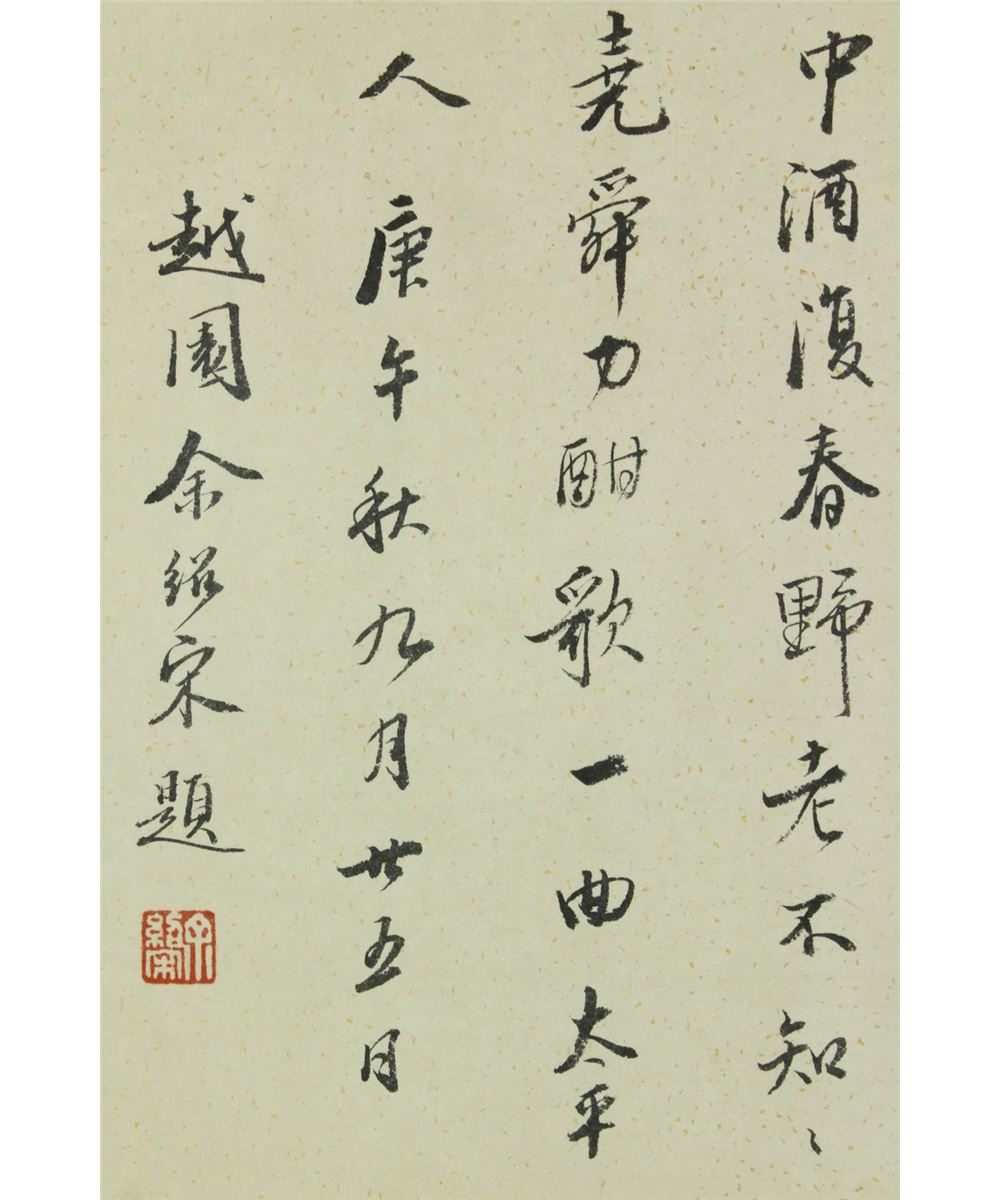 中酒復春野老不知〻
堯舜力酣歌一曲太平
人 庚午秋九月廿五日
越園余紹宋題
余紹宋